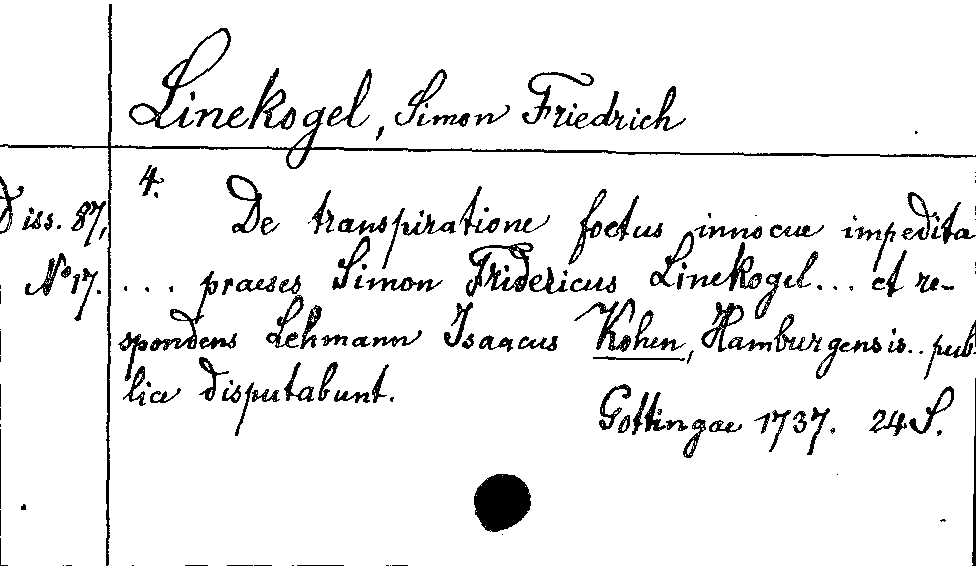 Linekogel, Simon Friedrich
4.
Diss. 87,
No 17.
De transpiratione foetus innocue impedita
... praeses Simon Fridericus Linekogel... et re-
spondens Lehmann Isaacus Kohen, Hamburgensis.. pub
lice disputabunt.
Gottingae 1737. 24 S.